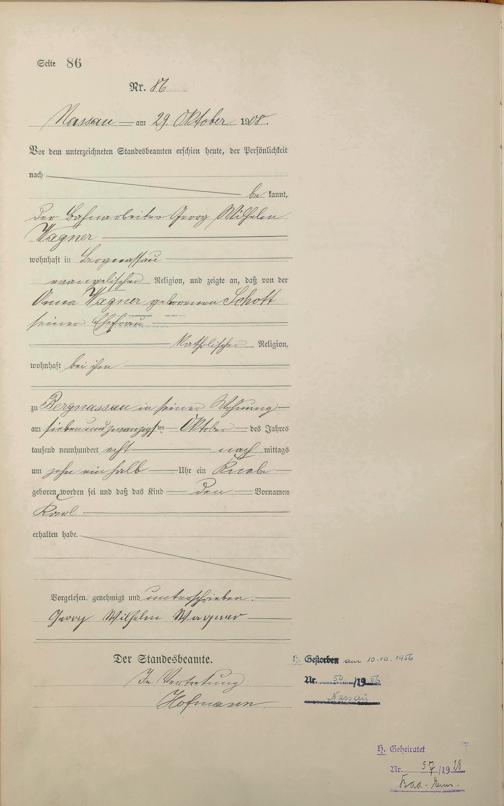 Seite 86
Nr. 86
Nassau am 29. Oktober 1908.
Vor dem unterzeichneten Standesbeamten erschien heute, der Persönlichkeit
nach
be kannt,
der Bahnarbeiter Georg Wilhelm
Wagner
wohnhaft in Bergnassau
evangelischer Religion, und zeigte an, daß von der
Anna Wagner geborenen Schott
seiner Ehefrau
katholischer Religion,
wohnhaft bei ihm
zu Bergnassau in seiner Wohnung
am siebenundzwanzigsten Oktober des Jahres
tausend neunhundert acht nach mittags
um zehn ein halb Uhr ein Knabe
geboren worden sei und daß das Kind den Vornamen
Karl
erhalten habe.
Vorgelesen, genehmigt und unterschrieben.
Georg Wilhelm Wagner
Der Standesbeamte.
In Vertretung
Hofmann
H. Gestorben am 10.10.1956
Nr. /1956
Nassau
H. Geheiratet
Nr. 57/19
Bad-Ems.